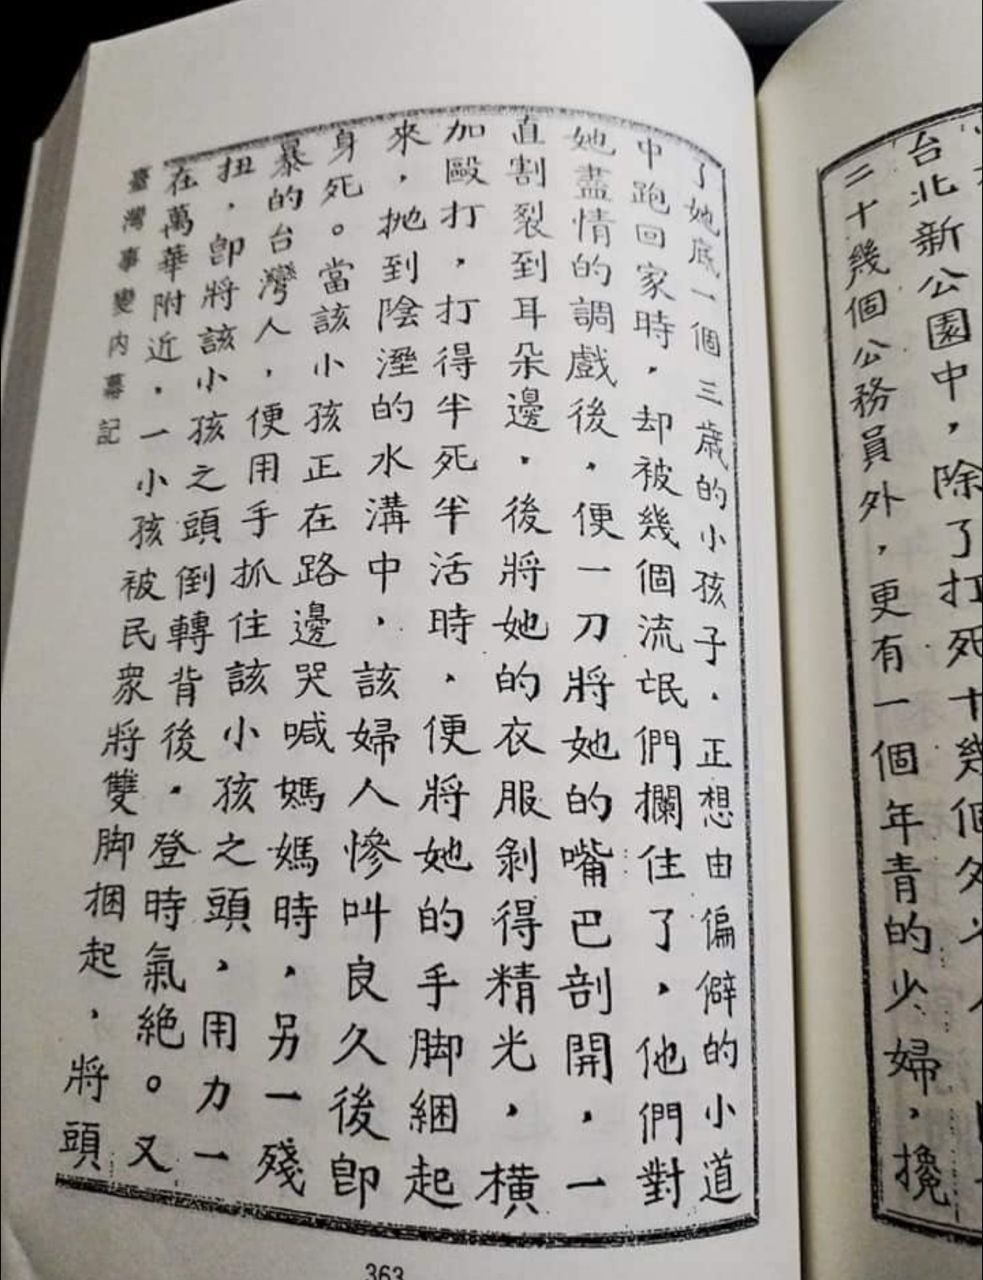 台北新公園中，除了打死十幾個
二十幾個公務員外，更有一個年青的少婦，攙
了她底一個三歲的小孩子，正想由偏僻的小道
中跑回家時，却被幾個流氓們攔住了，他們對
她盡情的調戲後，便一刀將她的嘴巴剖開，一
直割裂到耳朵邊，後將她的衣服剝得精光，橫
加毆打，打得半死半活時，便將她的手脚綑起
來，拋到陰溼的水溝中，該婦人慘叫良久後即
身死。當該小孩正在路邊哭喊媽媽時，另一殘
暴的台灣人，便用手抓住該小孩之頭，用力一
扭，即將該小孩之頭倒轉背後，登時氣絕。又
在萬華附近，一小孩被民衆將雙脚捆起，將頭
臺灣事變內幕記
363